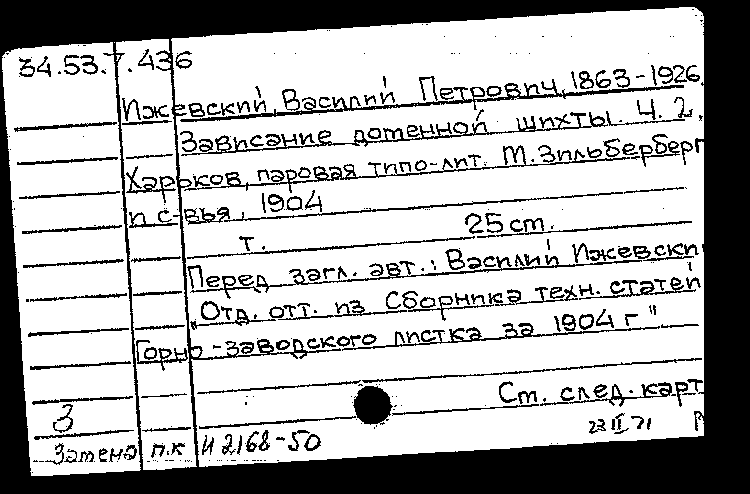 34.53.7.436
Ижевский, Василий Петрович, 1863-1926.
Зависание доменной шихты. Ч. 2.
Харьков, паровая типо-лит. М. Зильберберг
и с-вья, 1904
т. 25 cm.
Перед загл. авт.: Василий Ижевски
"Отд. отт. из Сборника техн. статей
Горно-заводского листка за 1904 г"
Ст. след. карт
З
23 II 71
Замена п.к И 2168-50